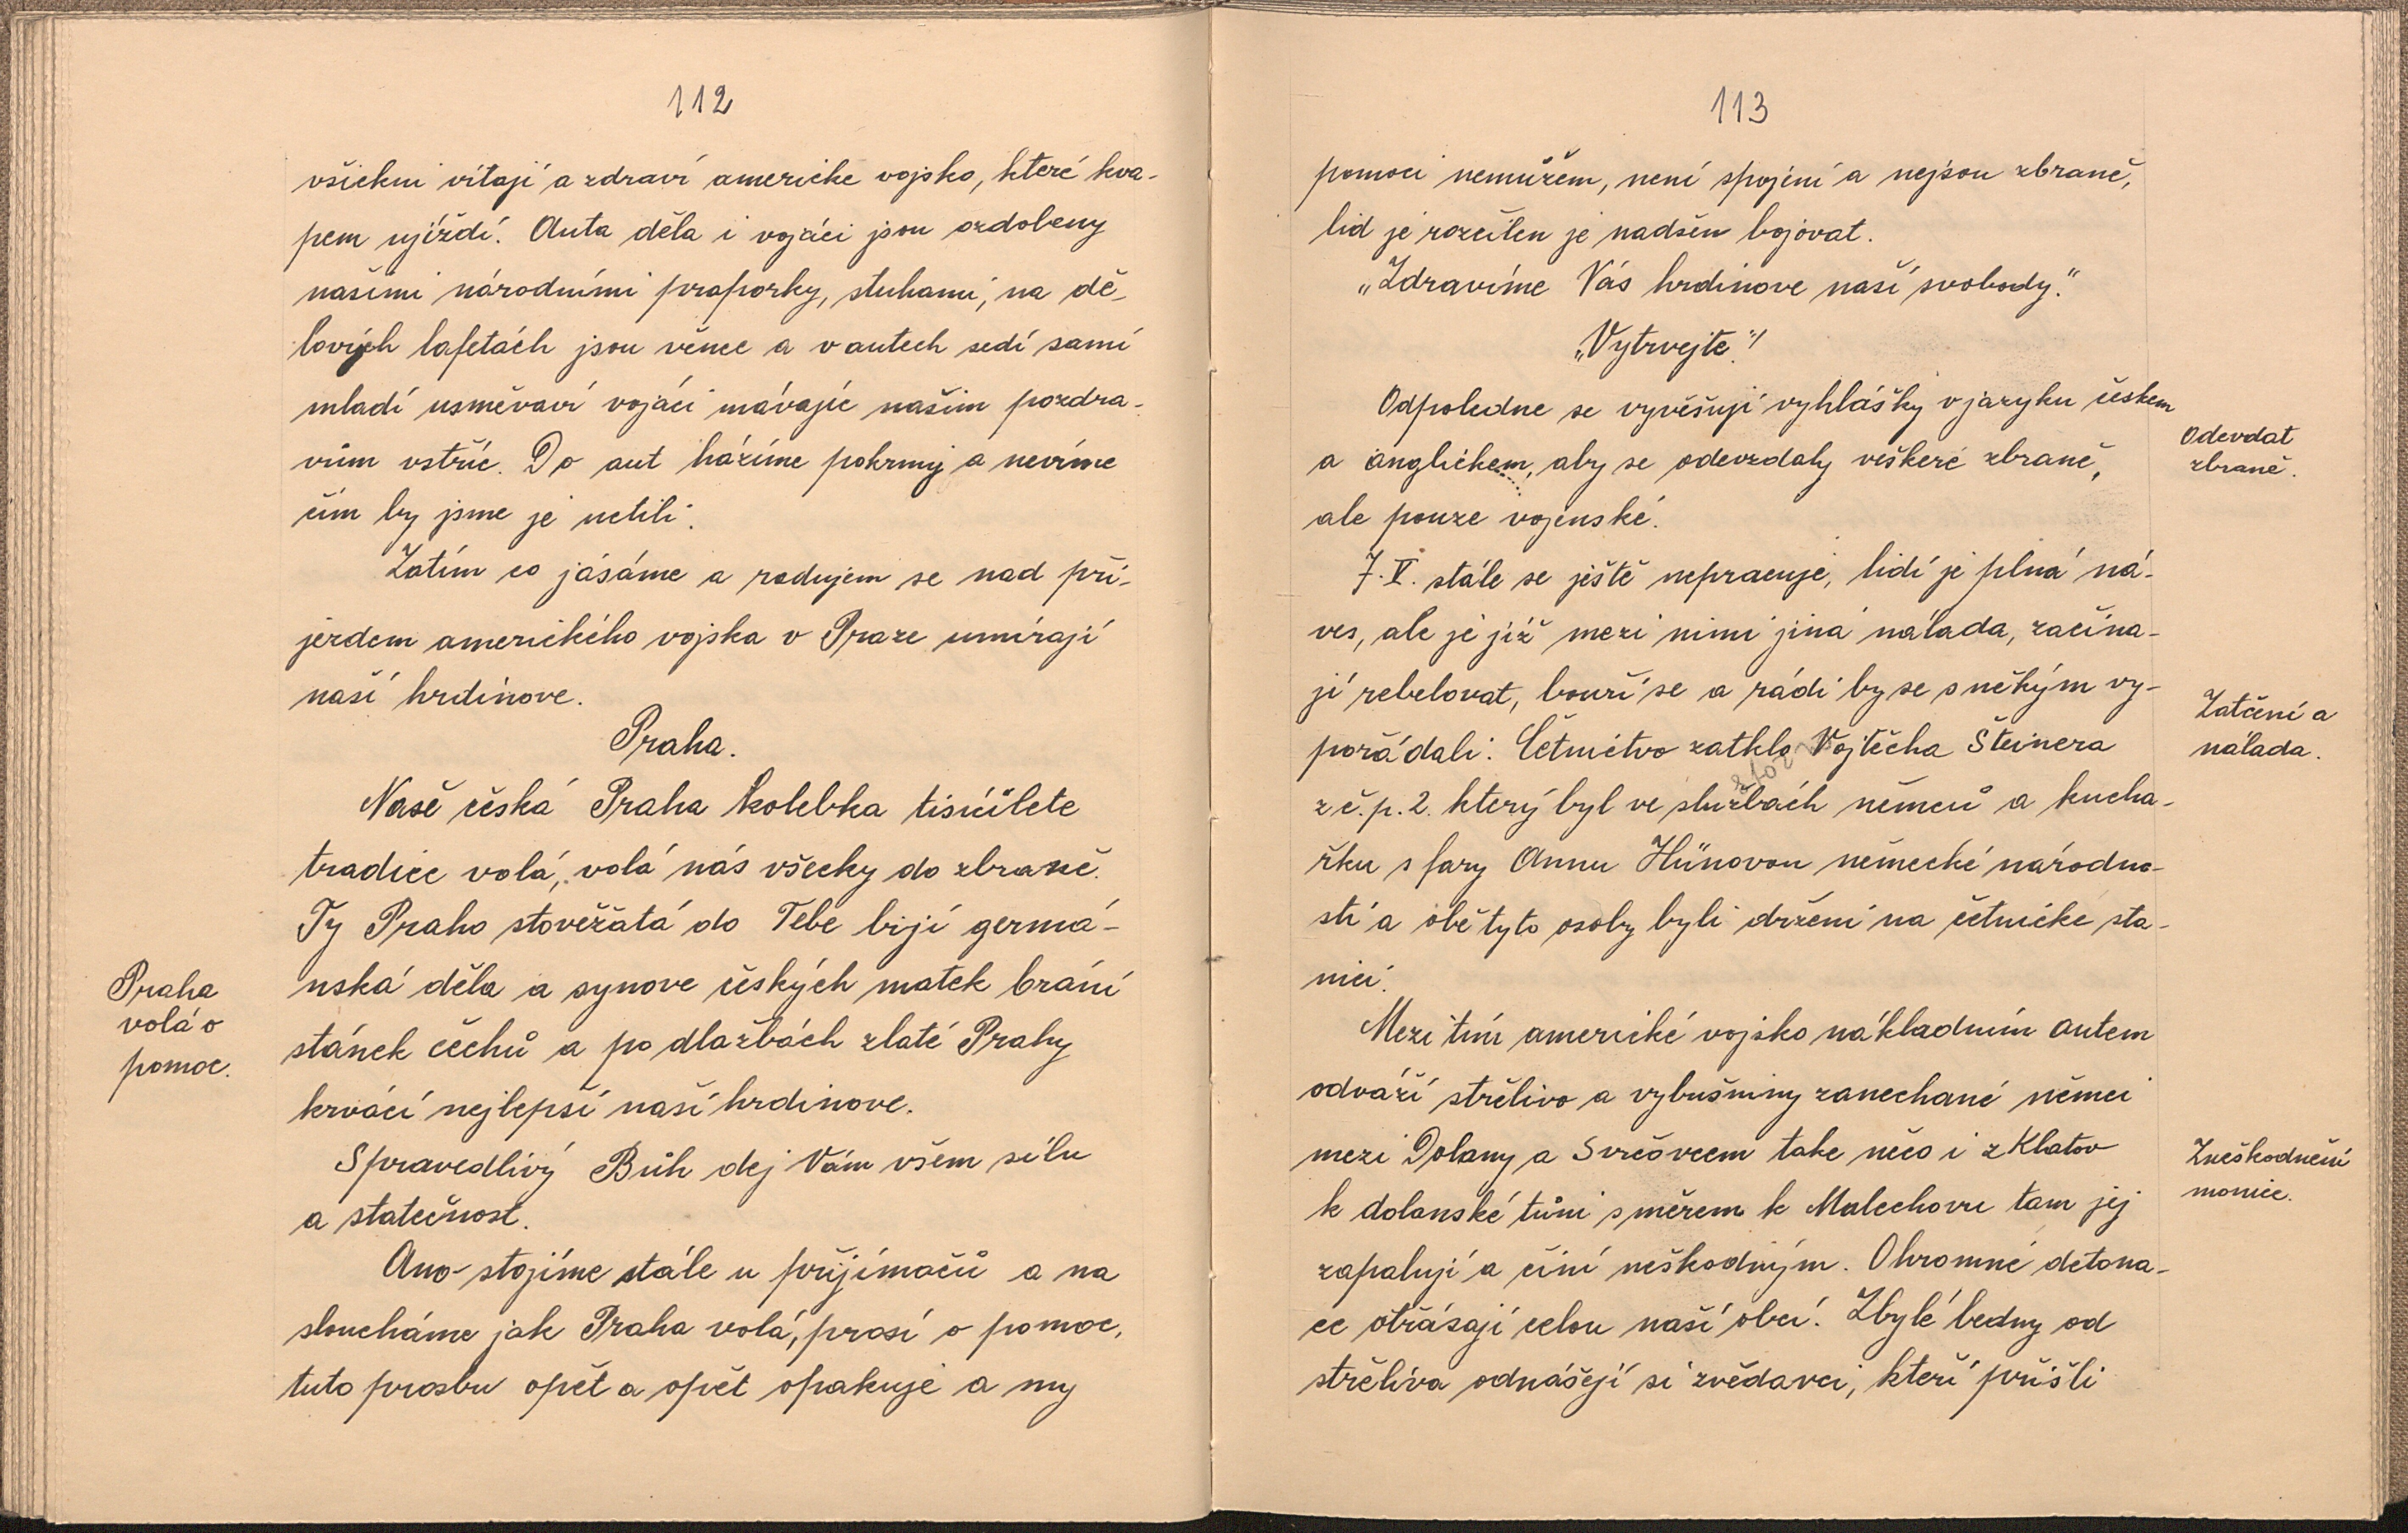 112
všickni vítají a zdraví americke vojsko, které kva-
pem ujíždí. Auta děla i vojáci jsou ozdobeny
našimi národními praporky, stuhami, na dě-
lových lafetách jsou věnce a v autech sedí samí
mladí usměvaví vojáci mávajíc našim pozdra-
vům vstříc. Do aut házíme pokrmy a nevíme
čím by jsme je uctili.
Zatím co jásáme a radujem se nad pří-
jezdem amerického vojska v Praze umírají
naší hrdinove.
Praha.
Naše česká Praha kolebka tisícileté
tradice volá, volá nás všecky do zbraně.
Ty Praho stověžatá do Tebe bijí germá-
nská děla a synove českých matek brání
Praha
volá o
pomoc.
stánek čechů a po dlažbách zlaté Prahy
krvácí nejlepší naší hrdinove.
Spravedlivý Bůh dej Vám všem sílu
a statečnost.
Ano- stojíme stále u přijímačů a na
sloucháme jak Praha volá, prosí o pomoc,
tuto prosbu opět a opět opakuje a my
113
pomoci nemůžem, není spojení a nejsou zbraně,
lid je rozčilen je nadšen bojovat.
„Zdravíme Vás hrdinove naší svobody.“
„Vytrvejte.“!
Odpoledne se vyvěšují vyhlášky v jazyku českem
a anglickem, aby se odevzdaly veškeré zbraně,
ale pouze vojenské.
Odevdat
zbraně.
7. V. stále se ještě nepracuje, lidí je plná ná-
ves, ale je již mezi nimi jiná nálada, začína-
jí rebelovat, bouří se a rádi by se s někým vy-
pořádali. Četnictvo zatklo Vojtěcha Šteinera
Zatčení a
nálada.
z č. p. 2. který byl ve službách němců a kucha-
řku s fary Annu Hünovou německé národno-
sti a obě tyto osoby byli drženi na četnicke sta-
nici.
Mezi tím americké vojsko nákladním autem
odváží střelivo a vybušniny zanechané němci
mezi Dolany a Svrčovcem take něco i z Klatov
k dolanské tůni směrem k Malechovu tam jej
Zneškodnění
monice.
zapalují a činí neškodným. Ohromné detona-
ce otřásají celou naší obcí. Zbylé bedny od
střeliva odnášejí si zvědavci, kteří přišli